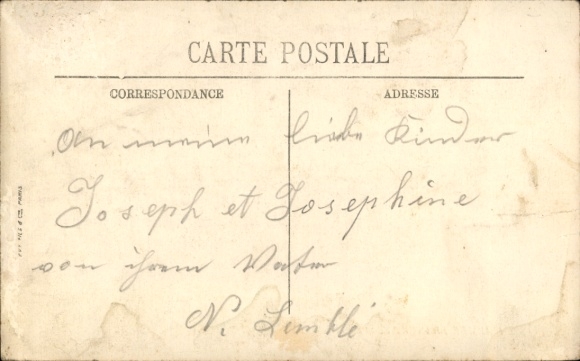 CARTE POSTALE
CORRESPONDANCE
ADRESSE
An meine liebe Kinder
Joseph et Josephine
von ihrem Vater
N.